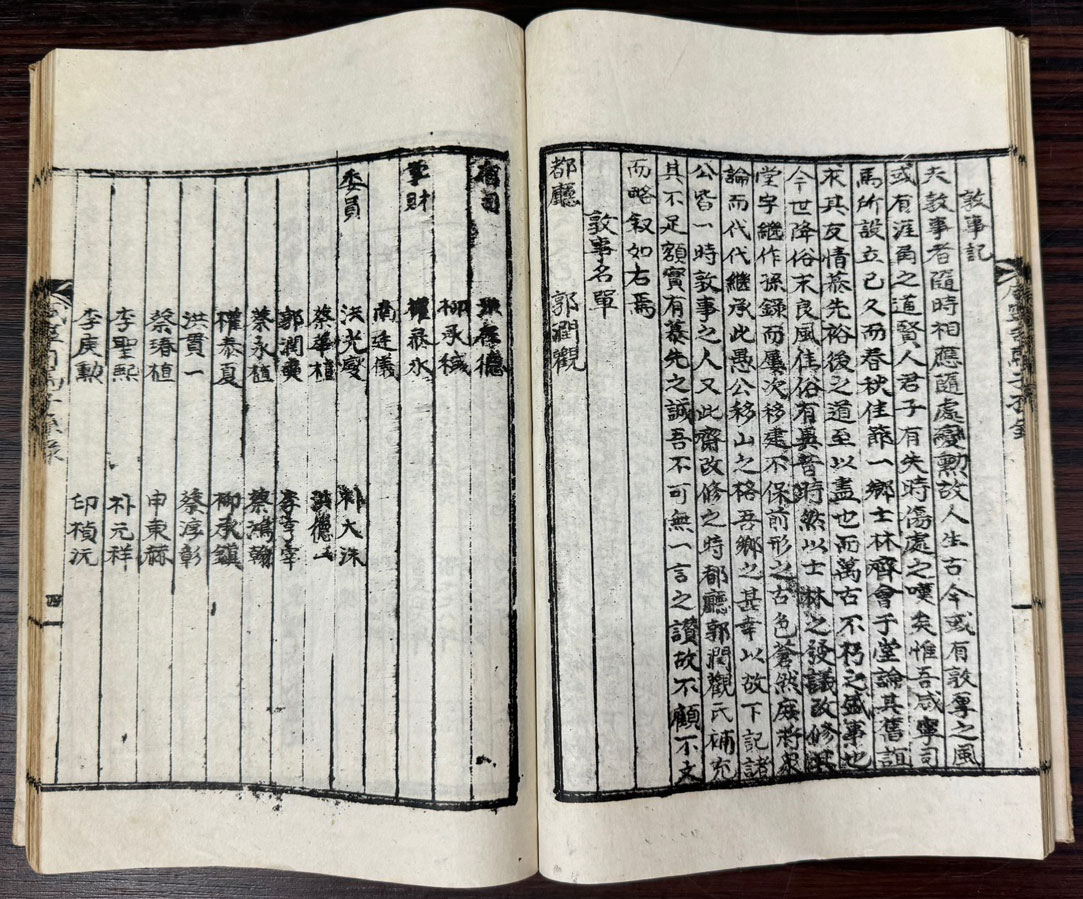 敦事記
夫敦事者隨時相應隨處變動故人生古今或有敦厚之風
或有涯角之道賢人君子有失時傷處之嘆矣惟吾咸寧司
馬所設立已久而春秋佳節一鄉士林齊會于堂論其舊誼
來其友情慕先裕後之道至以盡也而萬古不朽之盛事也
今世降俗末良風佳俗有異昔時然以士林之發議改修
堂宇繼作孫錄而屢次移建不保前形之古色蒼然庶將衆
論而代代繼承此愚公移山之格吾鄉之甚幸以故下記諸
公皆一時敦事之人又此齋改修之時都廳郭潤觀氏補充
其不足額實有慕先之誠吾不可無一言之讚故不顧不文
而略叙如右焉
敦事名單
都廳 郭潤觀
有司 德
柳承
掌財 權泰永
南廷儀
委員 洪光燮 朴大洙
蔡華植 洪德
郭潤奭 李
蔡永植 蔡鴻翰
權泰夏 柳承鎭
洪貫一 蔡淳彰
蔡瑃植 申東
李聖熙 朴元祥
李庚勳 印楨沅
四